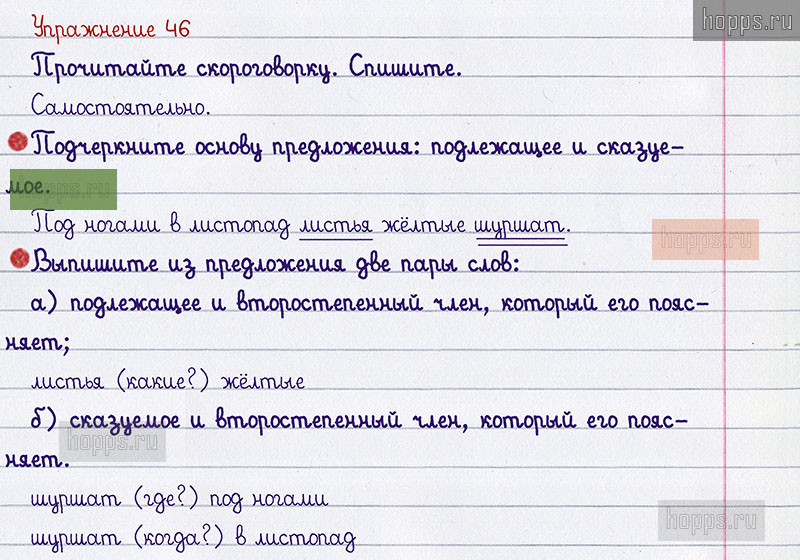 Упражнение 46
hopps.ru
Прочитайте скороговорку. Спишите.
Самостоятельно.
Подчеркните основу предложения: подлежащее и сказуе-
мое.
hopps.ru
Под ногами в листопад листья жёлтые шуршат.
hopps.ru
Выпишите из предложения две пары слов:
а) подлежащее и второстепенный член, который его пояс-
няет;
листья (какие?) жёлтые
б) сказуемое и второстепенный член, который его пояс-
hopps.ru
няет.
шуршат (где?) под ногами
hopps.ru
шуршат (когда?) в листопад